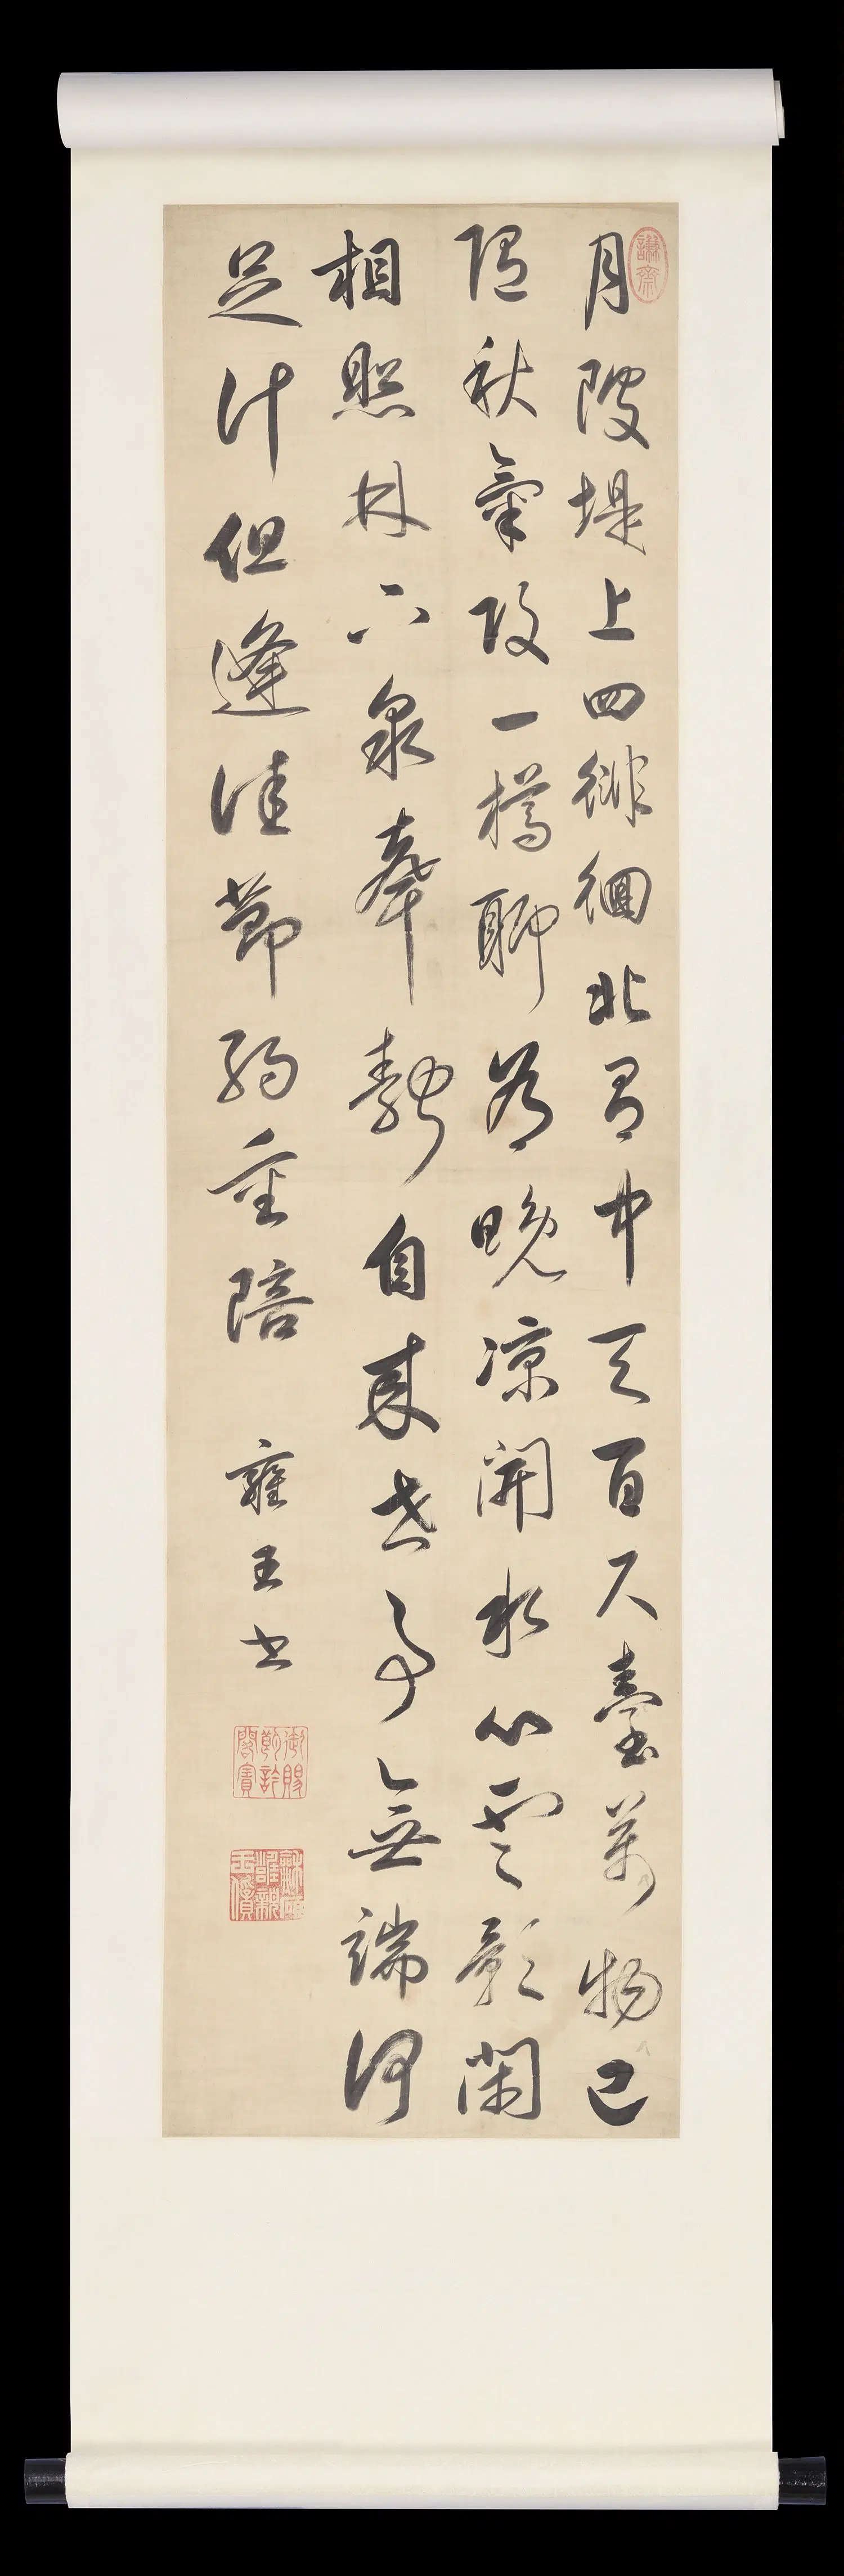 月陂堤上四徘徊北有中天百尺臺萬物已
隨秋氣改一樽聊為晚凉開水心雲影閑
相照林下泉聲静自来世事無端何
足計但逢佳節約重陪
雍王書
謙齋
御賜朗吟閣寶